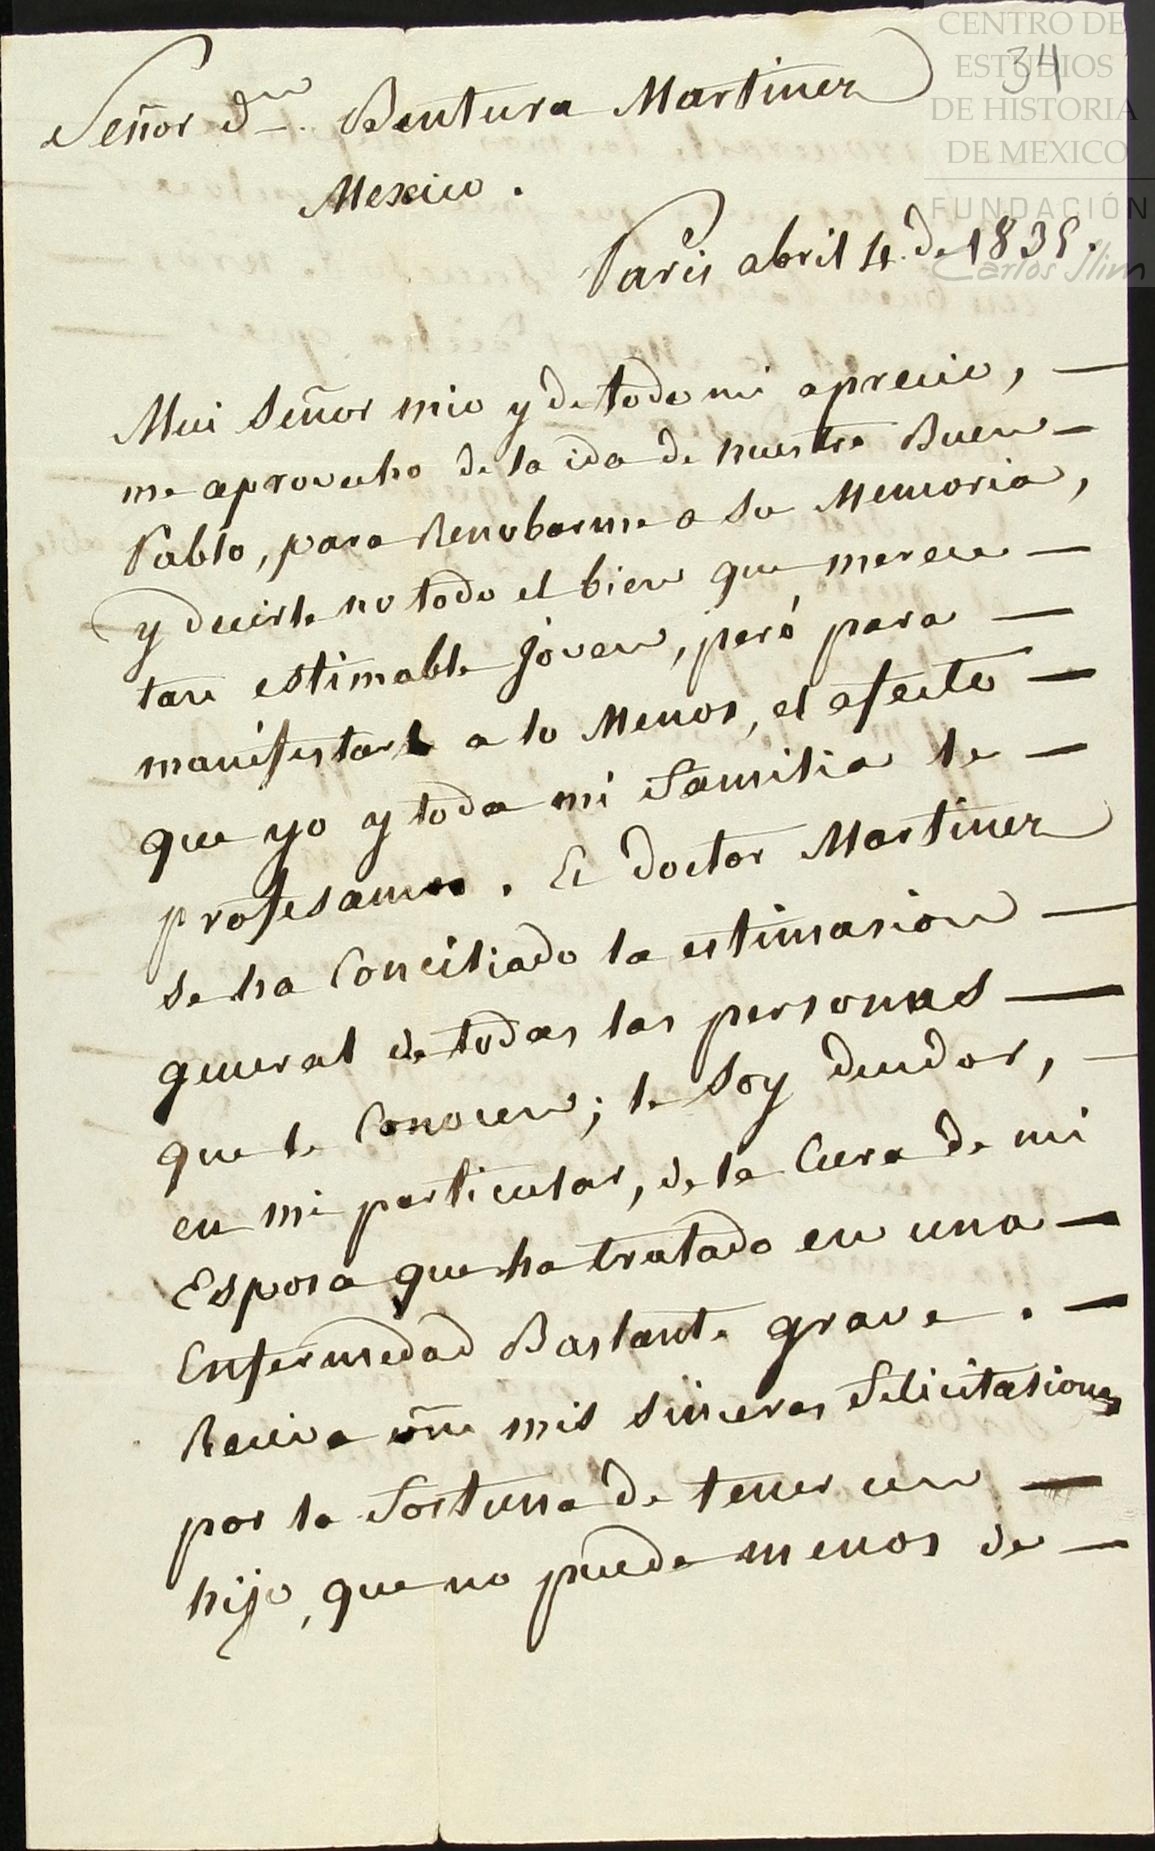 CENTRO DE
ESTUDIOS
DE HISTORIA
DE MEXICO
FUNDACIÓN
Carlos Slim
34
Señor Dn. Bentura Martinez
Mexico.
Paris abril 4. de 1835.
Mui Señor mio y de todo mi aprecio,
me aprovecho de la ida de nuestro Buen
Pablo, para Renobarme a su Memoria,
y decirle no todo el bien que merece
tan estimable joven, peró para
manifestarle a lo Menos, el afecto
que yo y toda mi Familia le
profesamos. El Doctor Martinez
se ha Conciliado la estimasion
general de todas las personas
que le Conocen; le soy deudor,
en mi particular, de la Cura de mi
Esposa que ha tratado en una
Enfermedad Bastante grave.
Reciva vm mis sinceras Felicitasiones
por la Fortuna de tener un
hijo, que no puede menos de